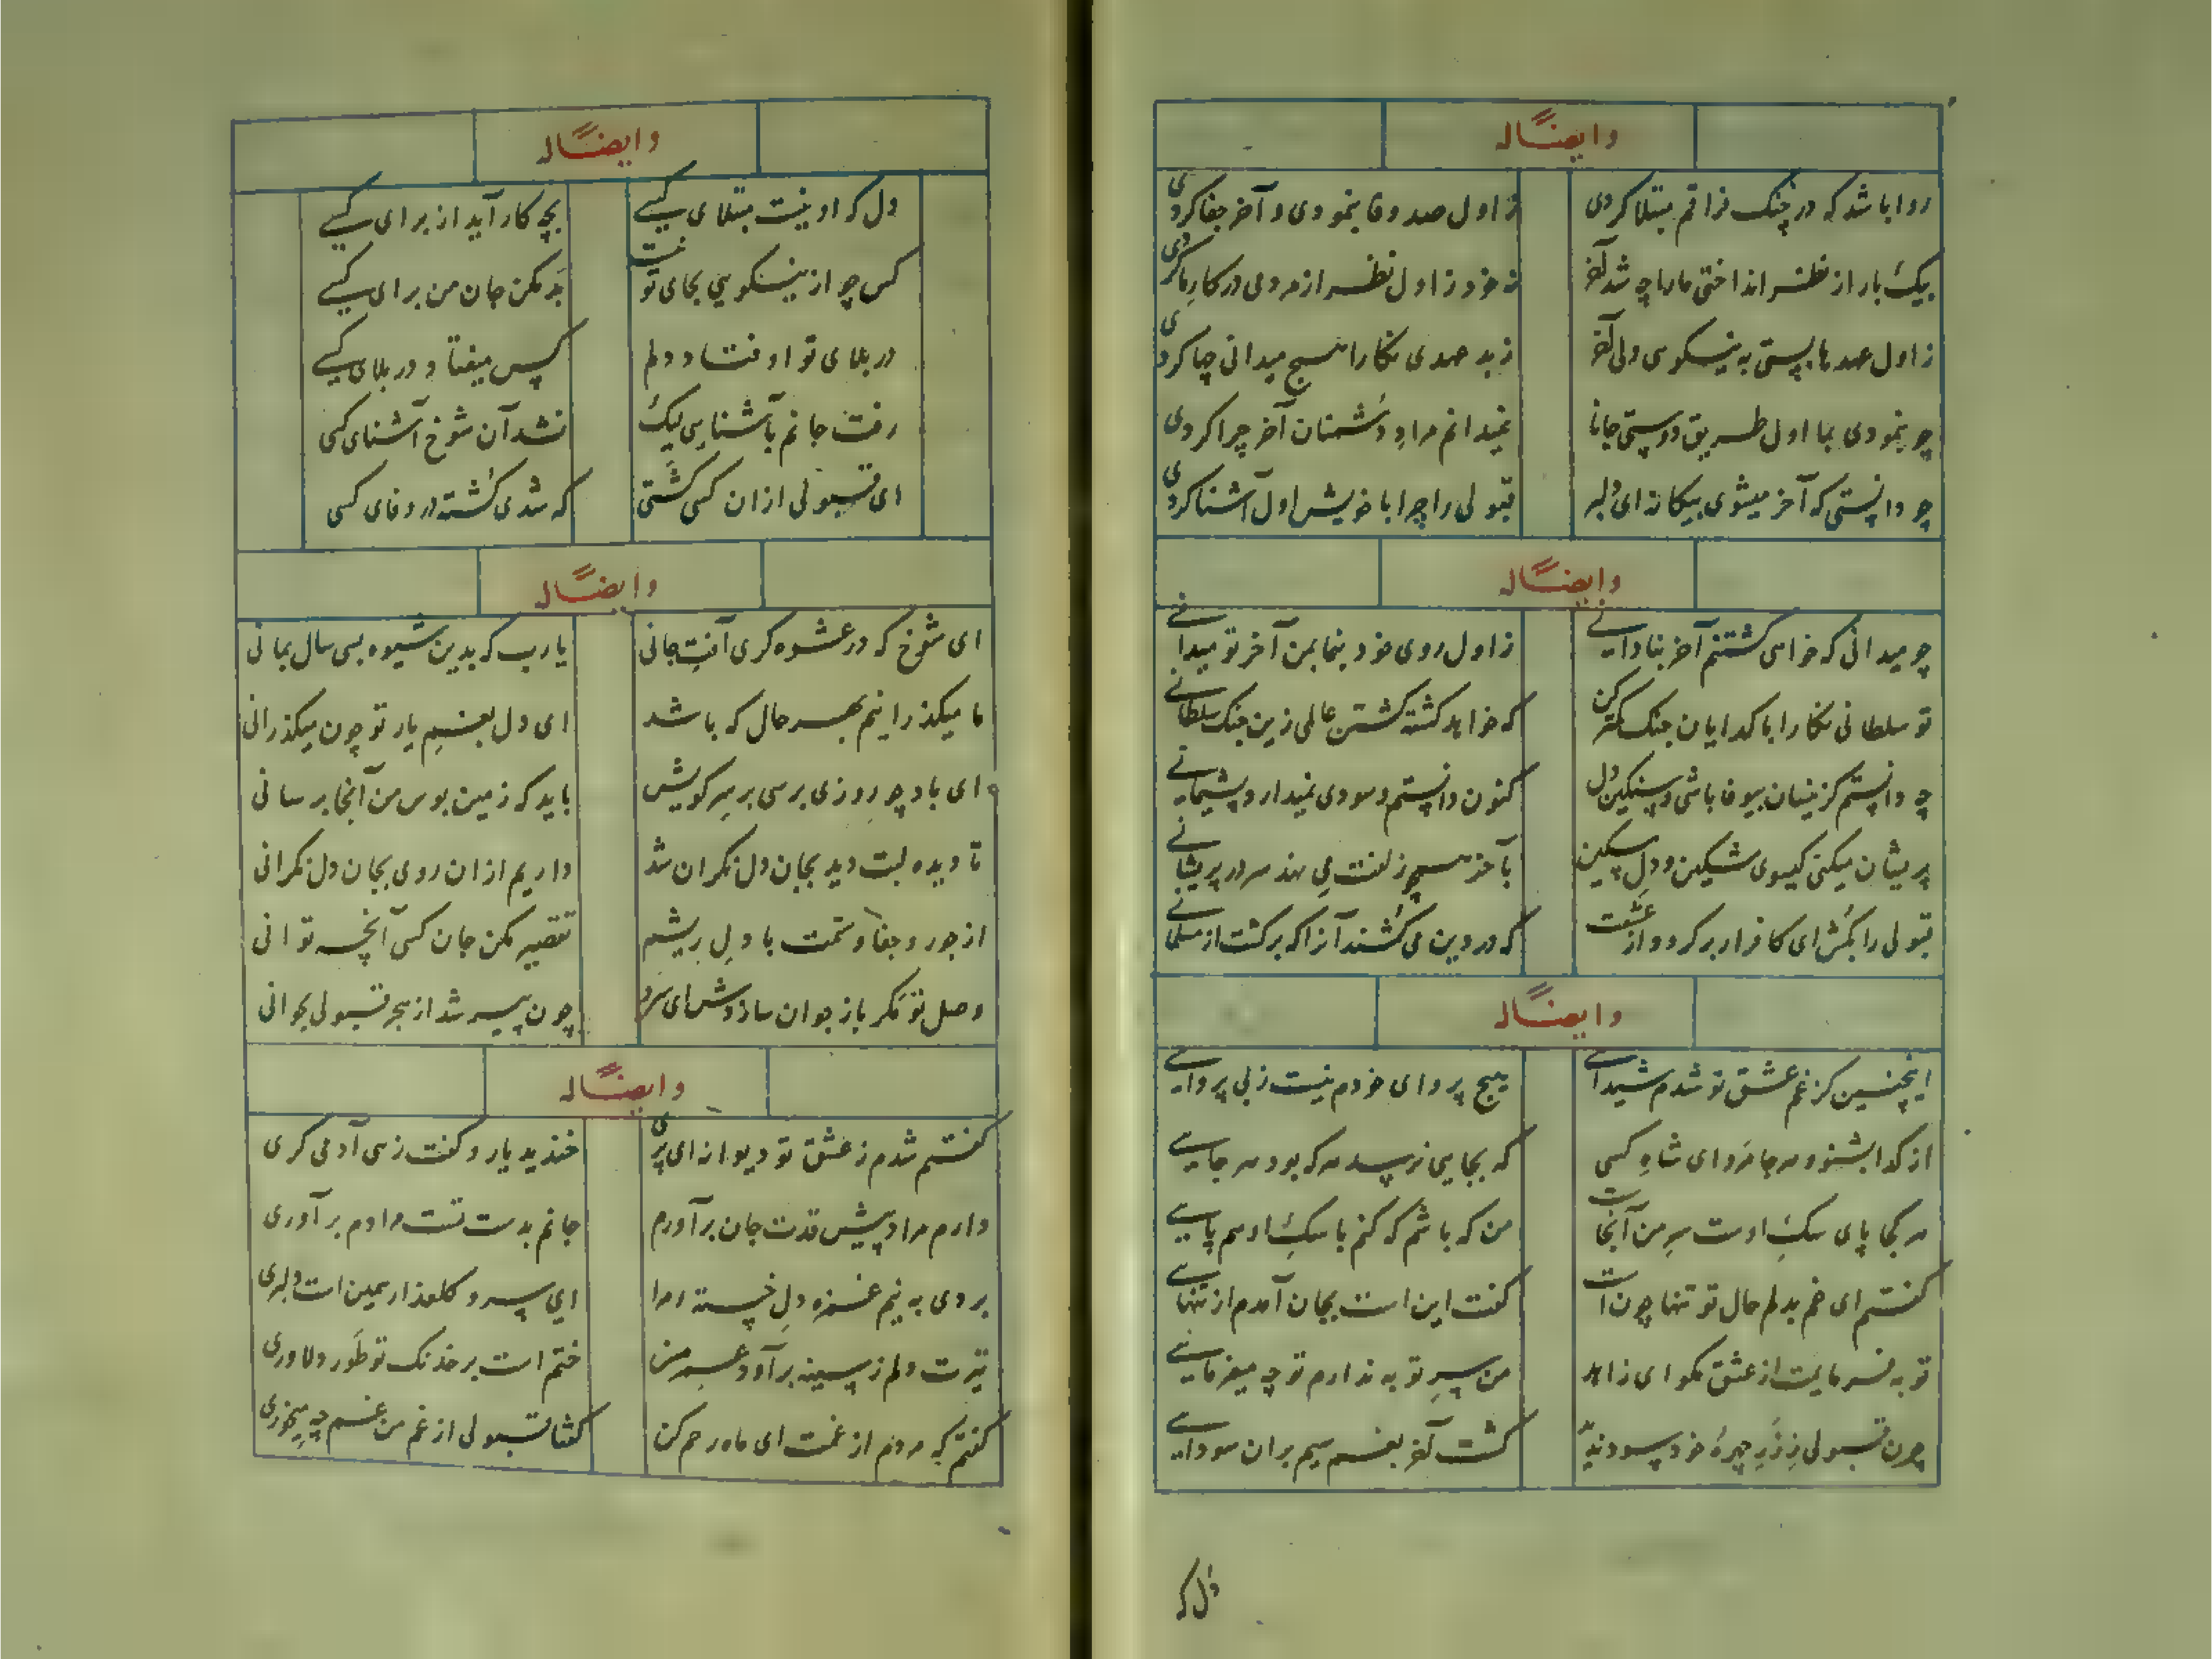 وایضاً له
روا باشد که در چنک فراقم مبتلا کردی
ز اول صد وفا بنمودی و آخر جفا کردی
بیک بار از نظر انداختی ما را چه شد آخر
ز خود ز اول نظر از مردمی در کار ما کردی
ز اول عهدها بستی به نیکویی ولی آخر
ز بد عهدی نکارا هیچ میدانی چها کردی
چو بنمودی بما اول طریق دوستی جانا
نمیدانم مرا دشمنان آخر چرا کردی
چو دانستی که آخر میشوی بیکانه ای دلبر
قبولی را چرا با خویش اول آشنا کردی
وایضاً له
چو میدانی که خواهی کشتنم آخر بنادانی
ز اول روی خود بنما بمن آخر تو میدانی
تو سلطانی نکارا با کدایان جنک کمتر کن
که خواهد کشته کشتن عالمی زین جنک سلطانی
چه دانستم کزینسان بیوفا باشی و سنکین دل
کنون دانستم و سودی نمیدارد پشیمانی
پریشان میکنی کیسوی مشکین و دل مسکین
بآخر هم ز لفت می نهد سر در پریشانی
قبولی را بکش ای کافر ار برکردد از عشقت
که در دین می کشند آنرا که برکشت از مسلمانی
وایضاً له
اینچنین کز غم عشق تو شدم شیدایی
هیچ پروای خودم نیست ز بی پروایی
از کدا بشنو و هر جا مرو ای شاه کسی
که بجایی نرسد هر که بود هر جایی
هر کجا پای سک اوست سر من آنجاست
من که باشم که کنم با سک او هم پایی
کفتم ای غم بدلم حال تو تنها چونست
کفت این است بجان آمدم از تنهایی
توبه فرمایت از عشق مکو ای زاهد
من سر توبه ندارم تو چه میفرمایی
چون قبولی ز زر چهره خود سود ندید
کشت آخر بغم سیم بران سودایی
دل که
وایضاً له
دل که او نیست مبتلای کسی
بچه کار آید از برای کسی
کس چو از نیکویی بجای تو نیست
بد مکن جان من برای کسی
در بلای تو اوفتاد دلم
کس میفتاد در بلای کسی
رفت جانم بآشنایی لیک
نشد آن شوخ آشنای کسی
ای قبولی ازان کسی کشتی
که شدی کشته در وفای کسی
وایضاً له
ای شوخ که در عشوه کری آفت جانی
یا رب که بدین شیوه بسی سال بمانی
ما میکذرانیم بهر حال که باشد
ای دل بغم یار تو چون میکذرانی
ای باد چو روزی برسی بر سر کویش
باید که زمین بوس من آنجا برسانی
تا دیده لبت دید بجان دل نکران شد
داریم ازان روی بجان دل نکرانی
از جور و جفا و ستمت با دل ریشم
تقصیر مکن جان کسی آنچه توانی
وصل تو مکر باز جوان سازدش ای سرو
چون پیر شد از هجر قبولی بجوانی
وایضاً له
کفتم شدم ز عشق تو دیوانه ای پری
خندید یار و کفت زهی آدمی کری
دارم مراد پیش قدت جان برآورم
جانم بدست تست مرادم برآوری
بردی به نیم غمزه دل خسته مرا
ای سرو کلعذار همین است دلبری
تیرت دلم ز سینه برآورد عمر من
ختم است بر خدنک تو طور دلاوری
کفتم که مردم از غمت ای ماه رحم کن
کفتا قبولی از غم من غم چه میخوری